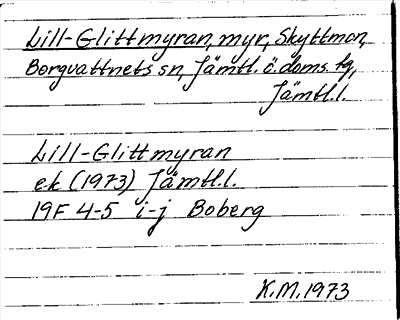 Lill-Glittmyran, myr, Skyttmon,
Borgvattnets sn, Jämtl. ö. doms. tg,
Jämtl.l.
Lill-Glittmyran
ek (1973) Jämtl.l.
19F 4-5 i-j Boberg
K.M. 1973